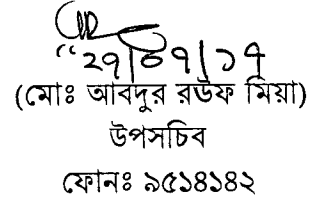 ২৭/০৭/১৭
(মোঃ আবদুর রউফ মিয়া)
উপসচিব
ফোনঃ ৯৫১৪১৪২